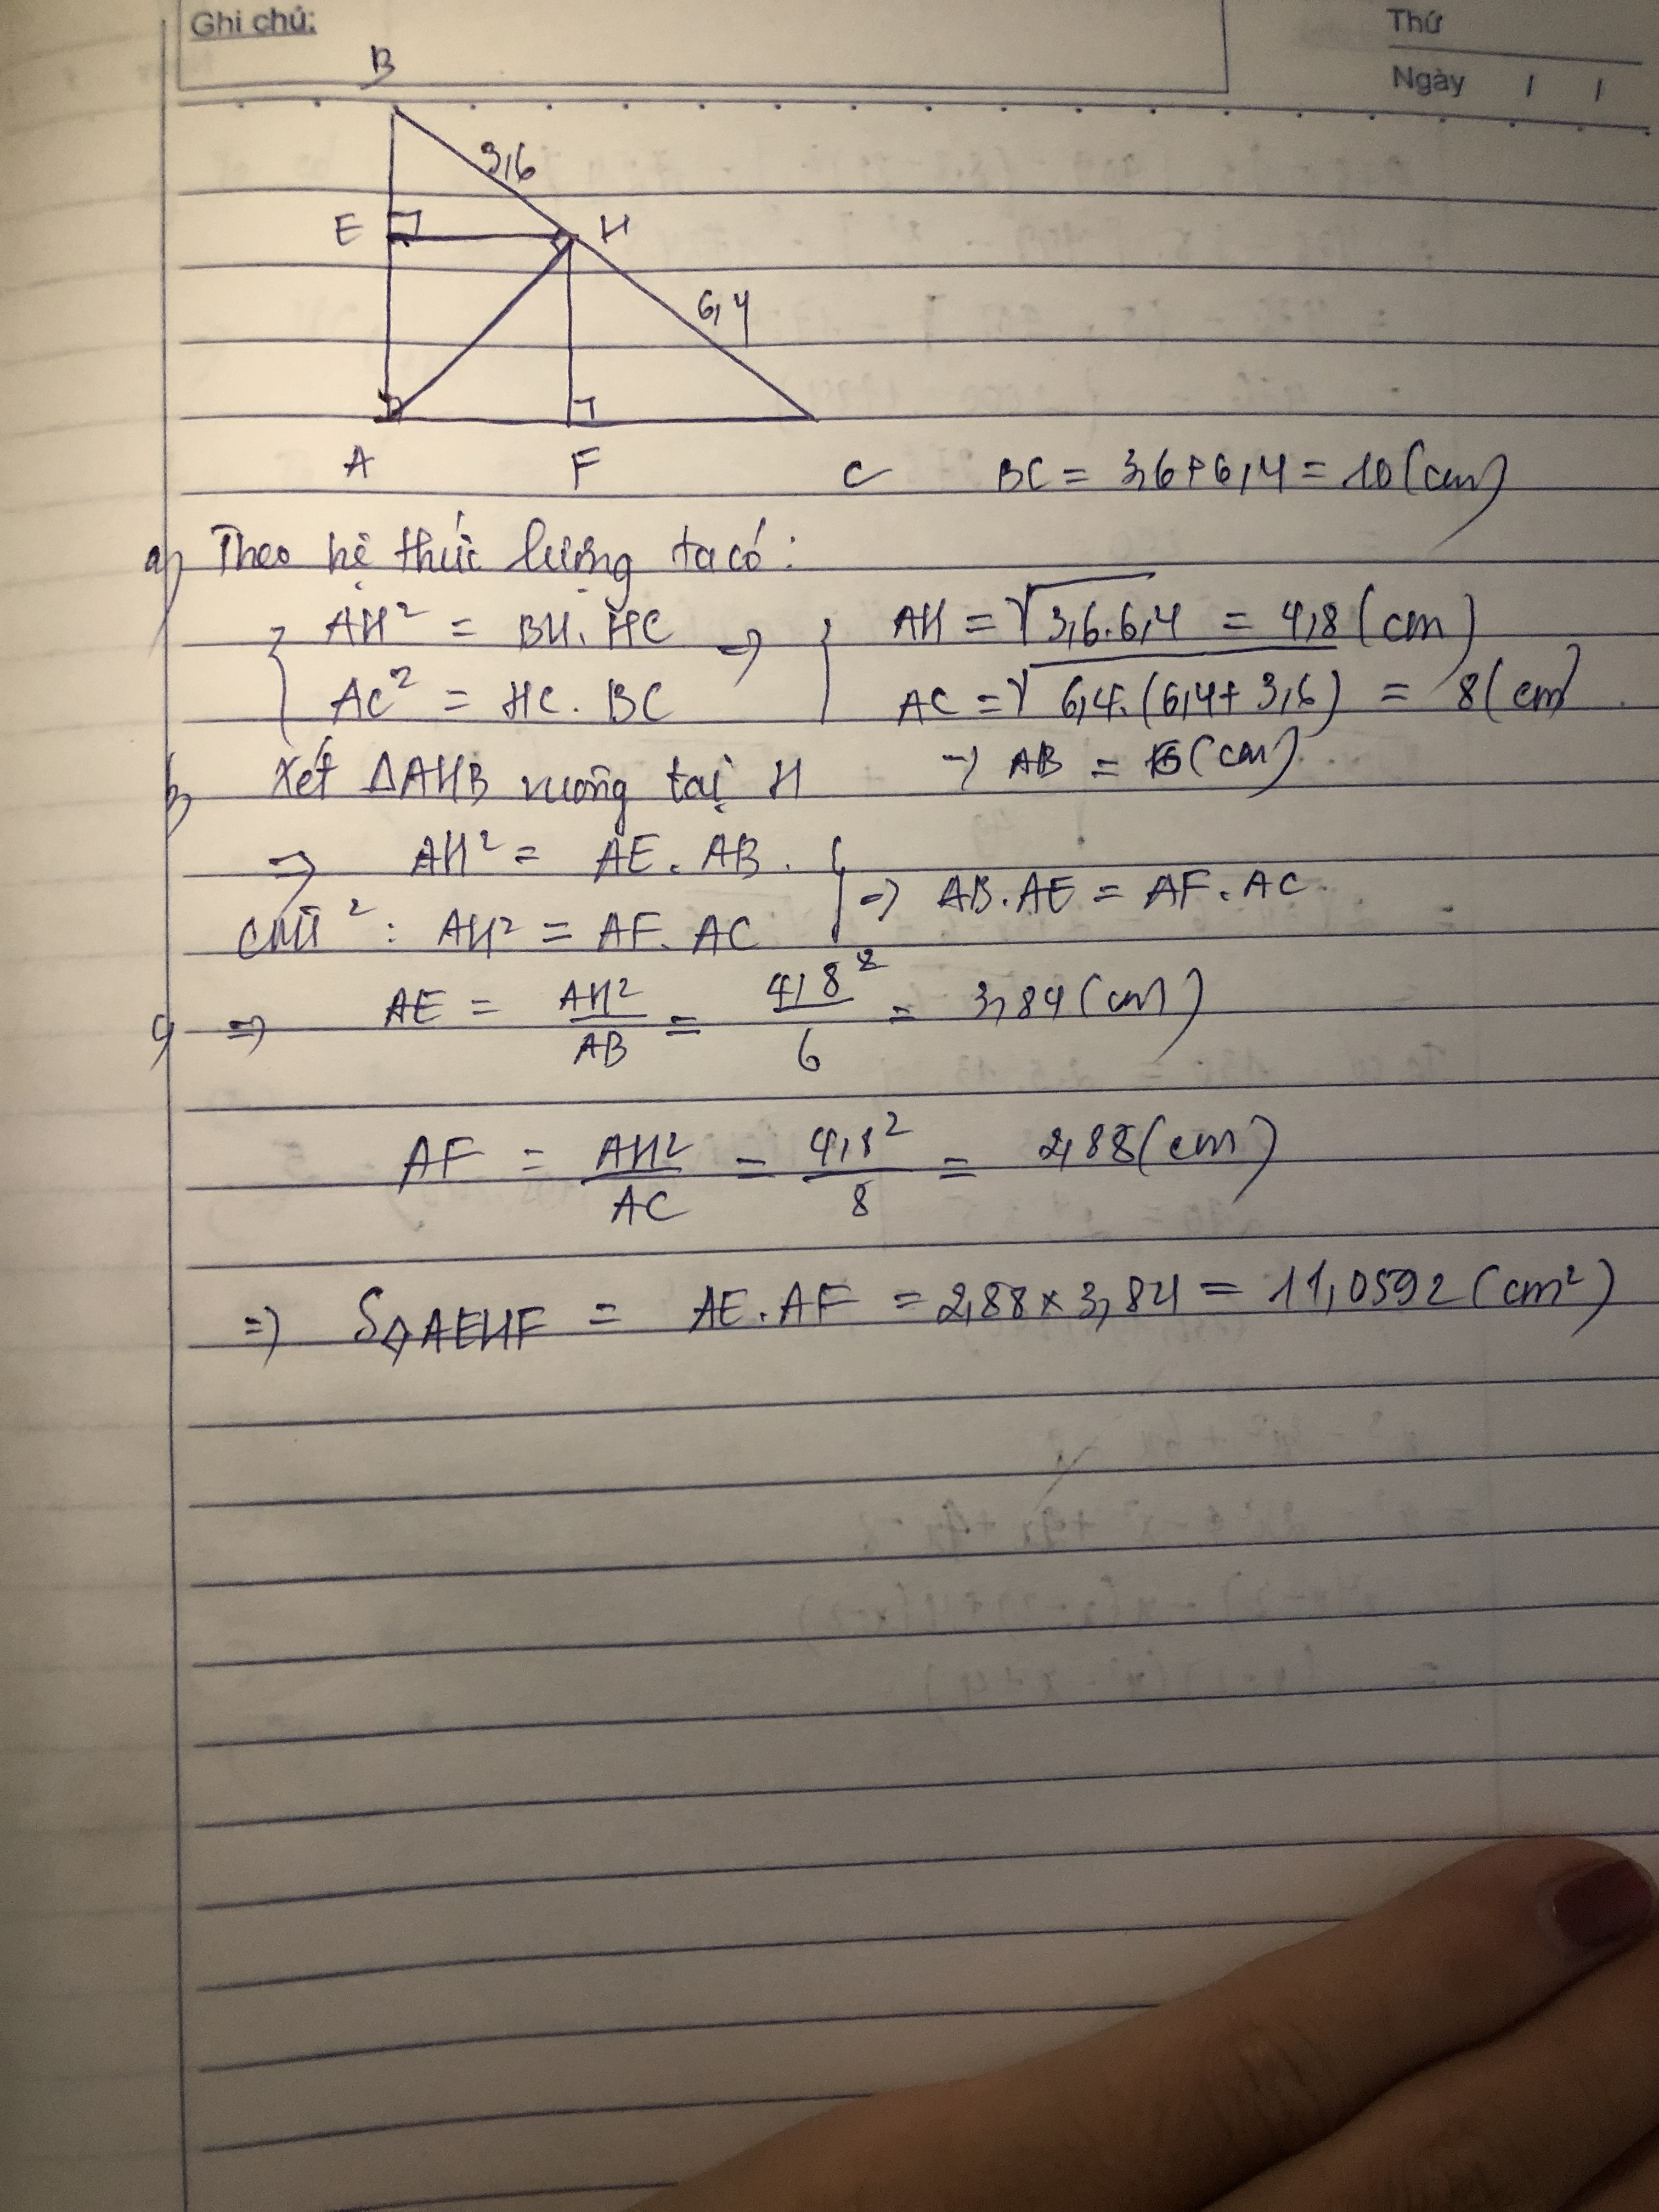 Ghi chú:
Thứ
Ngày / /
B
3,6
E
H
6,4
A
F
C
BC = 3,6 + 6,4 = 10 (cm)
a) Theo hệ thức lượng ta có:
{ AH² = BH. HC => { AH = √3,6.6,4 = 4,8 (cm)
AC² = HC. BC AC = √6,4.(6,4+3,6) = 8 (cm)
→ AB = 6 (cm)
b) Xét ΔAHB vuông tại H
=> AH² = AE. AB.
CMT²: AH² = AF. AC } => AB.AE = AF.AC.
c) => AE = AH²/AB = 4,8²/6 = 3,84 (cm)
AF = AH²/AC = 4,8²/8 = 2,88 (cm)
=> S AEHF = AE.AF = 2,88 x 3,84 = 11,0592 (cm²)